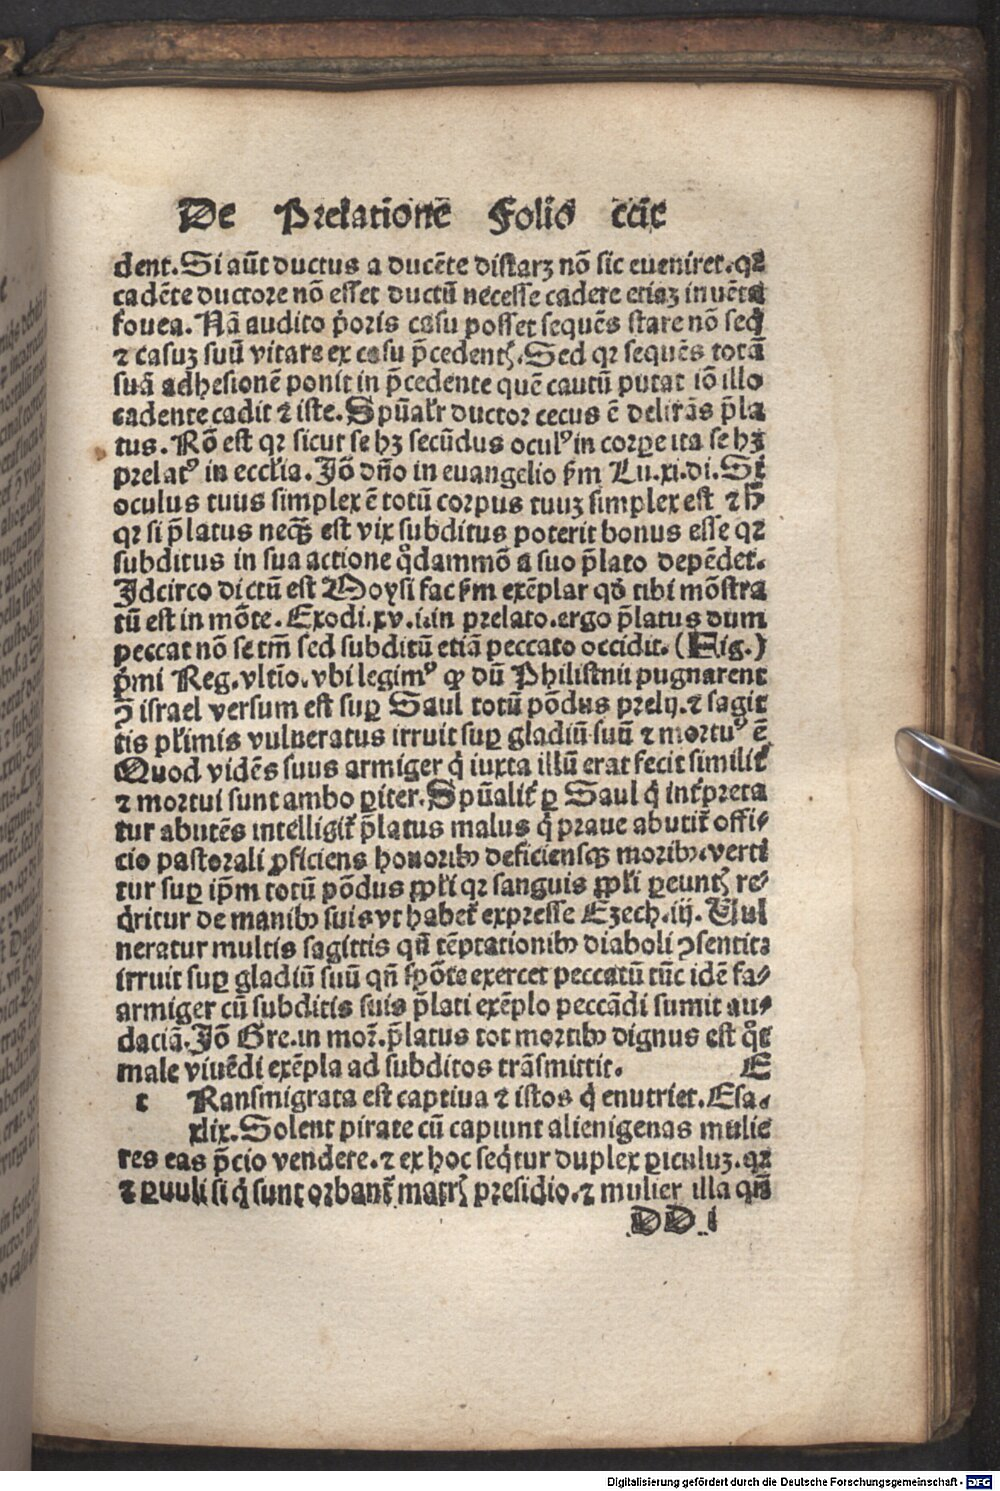 De Prelatione Folio ccic
dent. Si aūt ductus a ducēte distaꝫ nō sic eueniret. qꝛ
cadēte ductore nō esset ductū necesse cadere etiaꝫ in vētā
fouea. Nā audito p̄oris casu posset sequēs stare nō seq̄
⁊ casuꝫ suū vitare ex casu p̄cedentꝭ. Sed qꝛ sequēs totā
suā adhesionē ponit in p̄cedente quē cautū putat iō illo
cadente cadit ⁊ iste. Spūalr̄ ductor cecus ē delirās p̄la
tus. Rō est qꝛ sicut se hꝫ secūdus oculꝰ in corꝑe ita se hꝫ
prelatꝰ in eccłia. Jō dn̄o in euangelio ẜm Lu. xi. di. Si
oculus tuus simplex ē totū corpus tuuꝫ simplex est ⁊ h̄
qꝛ si p̄latus neqꝫ est vix subditus poterit bonus esse qꝛ
subditus in sua actione q̊dammō a suo p̄lato depēdet.
Jdcirco dictū est Moysi fac ẜm exēplar qd̄ tibi mōstra
tū est in mōte. Exodi. xv. i. in prelato. ergo p̄latus dum
peccat nō se tm̄ sed subditū etiā peccato occidit. (Fig.)
p̄mi Reg. vltīo. vbi legimꝰ ꝙ dū Philistnii pugnarent
ↄ̄ israel versum est suꝑ Saul totū pōdus prelij. ⁊ sagit
tis pl̄imis vulneratus irruit suꝑ gladiū suū ⁊ mortuꝰ ē
Quod vidēs suus armiger q̄ iuxta illū erat fecit similit̄
⁊ mortui sunt ambo ꝑiter. Spūalit̄ ꝑ Saul q̄ int̄preta
tur abutēs intelligit̄ p̄latus malus q̄ praue abutit̄ offi⸗
cio pastorali ꝓficiens honoribꝰ deficiensqꝫ moribꝰ. verti
tur suꝑ ip̄m totū pōdus ꝓpl̄i qꝛ sanguis ꝓpl̄i ꝑeuntꝭ re⸗
q̄ritur de manibꝰ suis vt habet̄ expresse Ezech. iij. Uul
neratur multis sagittis qn̄ tēptationibꝰ diaboli ↄsentit:
irruit suꝑ gladiū suū qn̄ sp̄ōte exercet peccatū tūc idē fa⸗
armiger cū subditis suis p̄lati exēplo peccādi sumit au⸗
daciā. Jō Gre. in mor̄. p̄latus tot mortibꝰ dignus est q̊t
male viuēdi exēpla ad subditos trāsmittit. E
t Ransmigrata est captiua ⁊ istos q̄ enutriet. Esa.
xlix. Solent pirate cū capiunt alienigenas mulie
res eas p̄cio vendere. ⁊ ex hoc seq̄tur duplex ꝑiculuꝫ. qꝛ
⁊ ꝑuuli si q̄ sunt orbant̄ matrꝭ presidio. ⁊ mulier illa qn̄
DD i
Digitalisierung gefördert durch die Deutsche Forschungsgemeinschaft - DFG